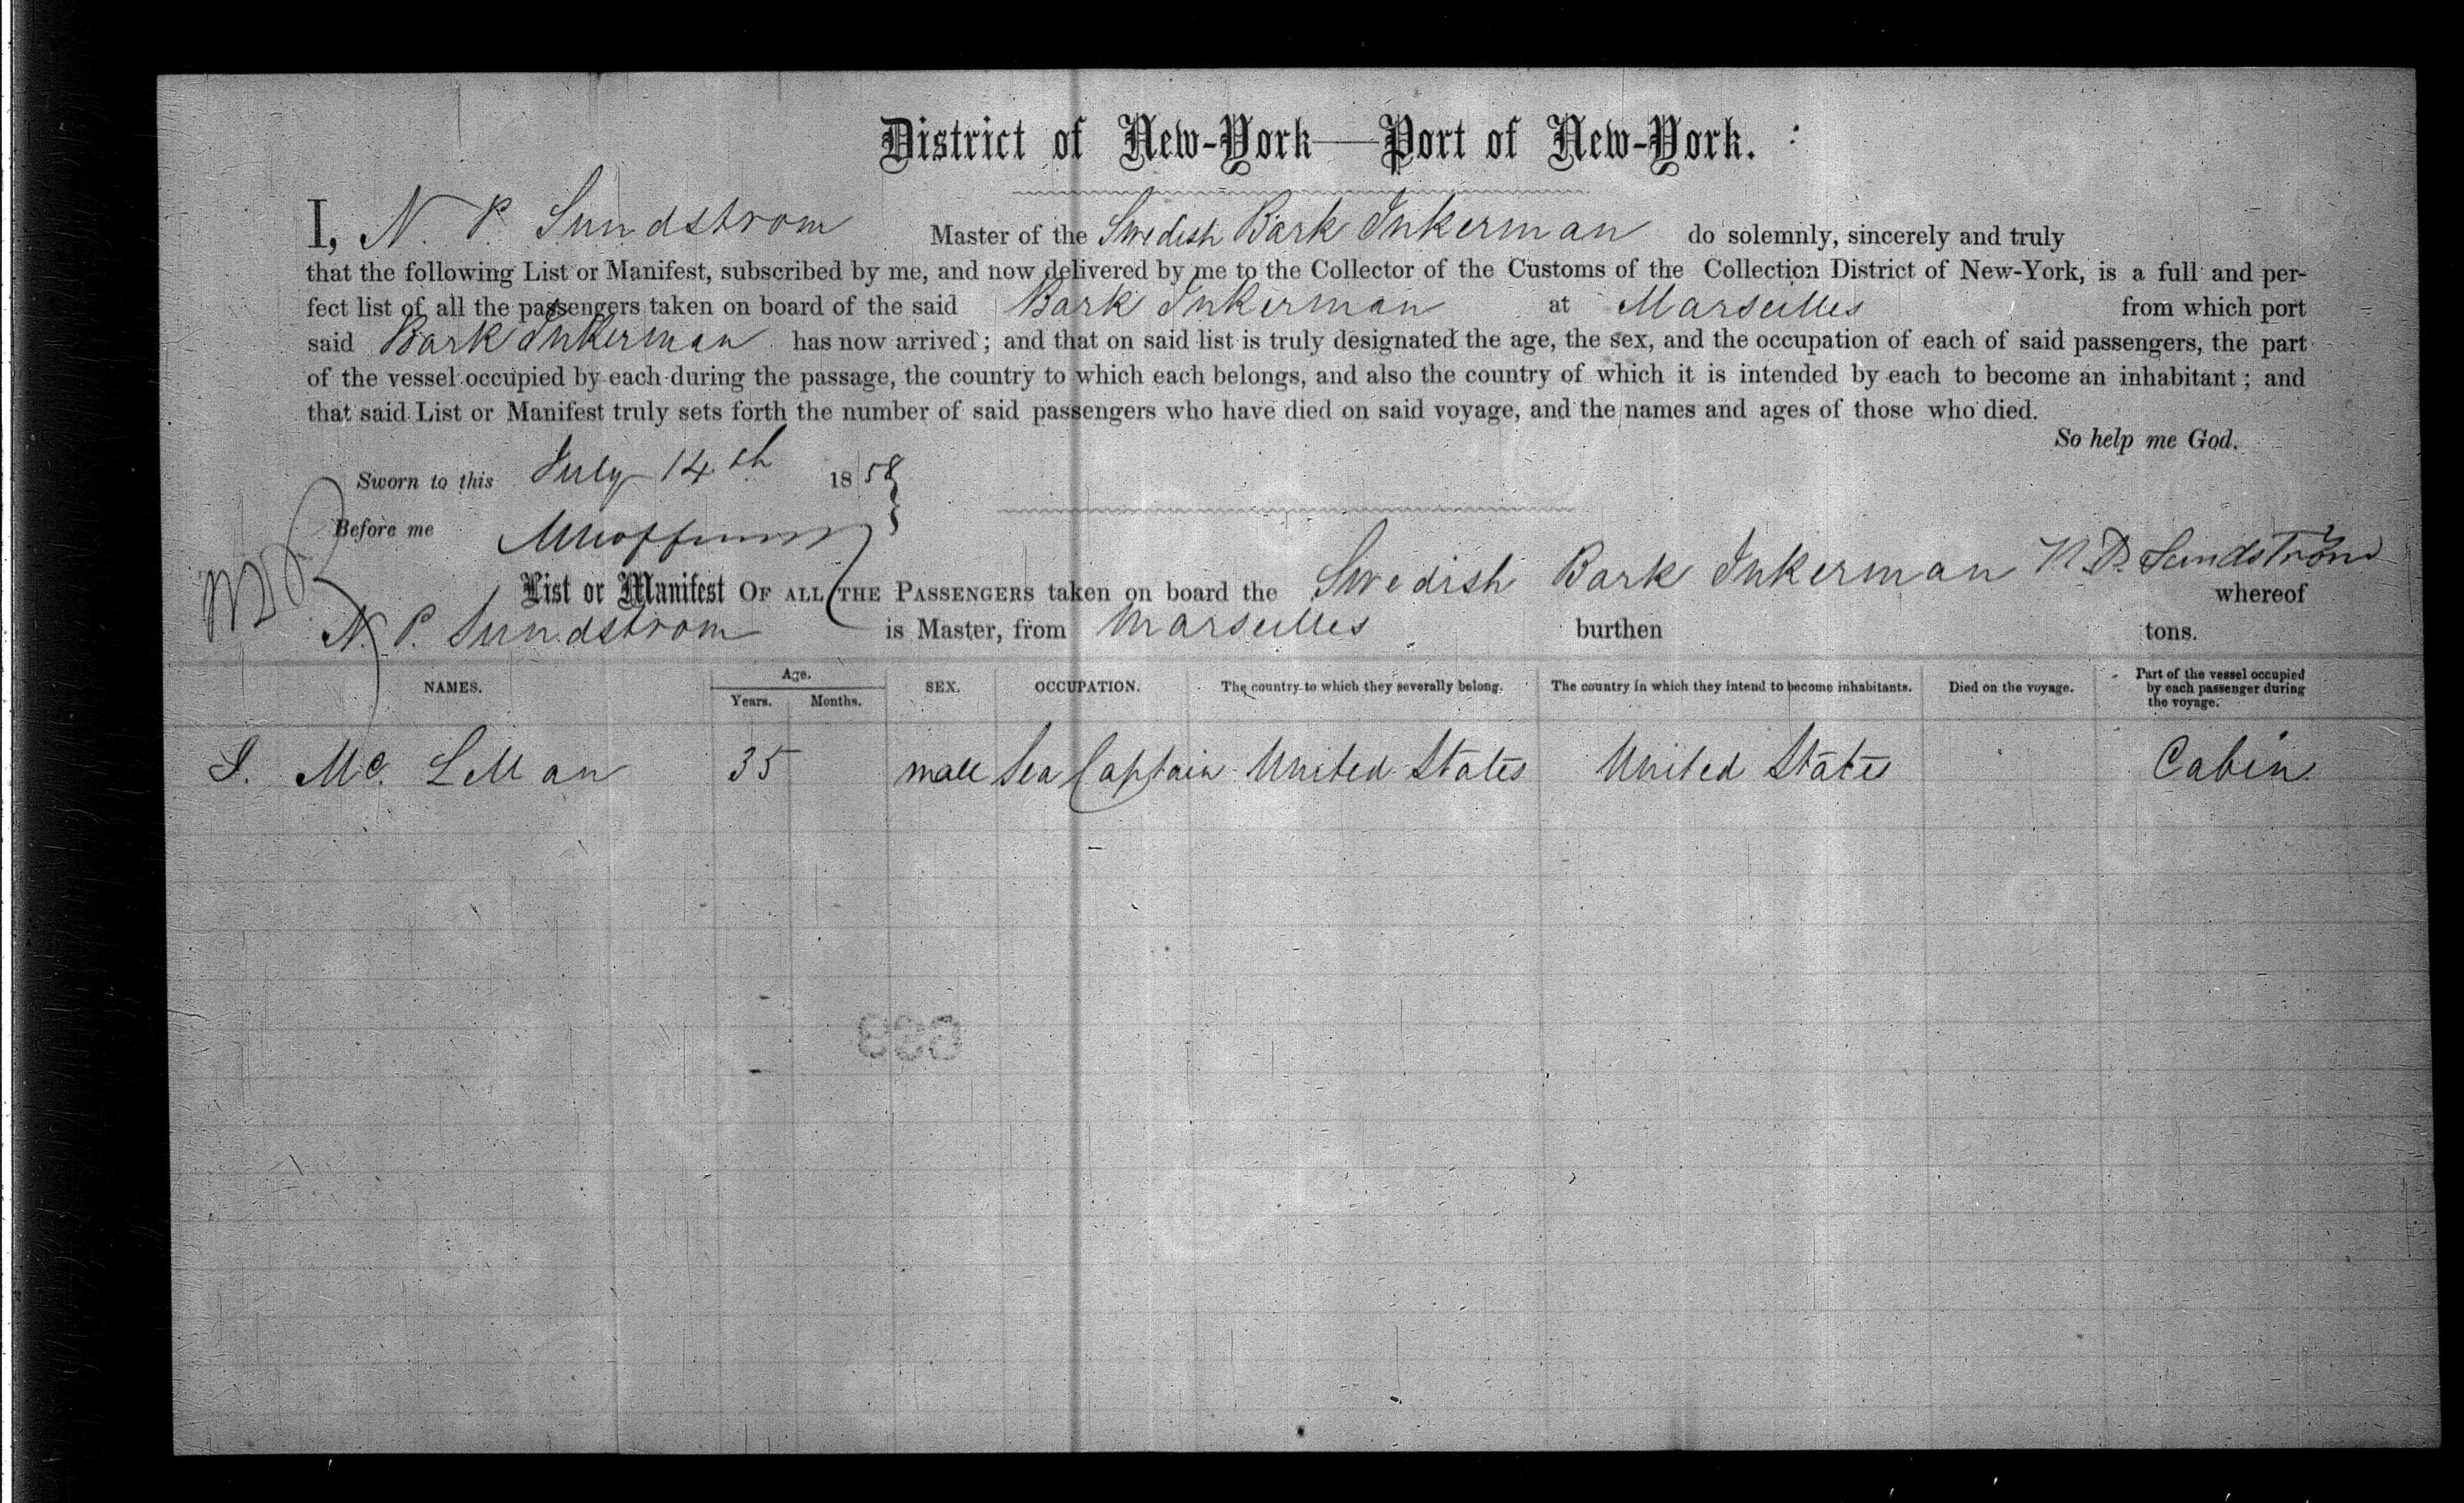 District of New-York—Port of New-York.
I, N. P. Sundstrom Master of the Swedish Bark Inkerman do solemnly, sincerely and truly
that the following List or Manifest, subscribed by me, and now delivered by me to the Collector of the Customs of the Collection District of New-York, is a full and per-
fect list of all the passengers taken on board of the said Bark Inkerman at Marseilles from which port
said Bark Inkerman has now arrived; and that on said list is truly designated the age, the sex, and the occupation of each of said passengers, the part
of the vessel occupied by each during the passage, the country to which each belongs, and also the country of which it is intended by each to become an inhabitant; and
that said List or Manifest truly sets forth the number of said passengers who have died on said voyage, and the names and ages of those who died.
So help me God.
Sworn to this July 14th 1858
Before me
N. P. Sundström
List or Manifest OF ALL THE PASSENGERS taken on board the Swedish Bark Inkerman whereof
N. P. Sundstrom is Master, from Marseilles burthen tons.
NAMES. Age. Years. Months. SEX. OCCUPATION. The country to which they severally belong. The country in which they intend to become inhabitants. Died on the voyage. Part of the vessel occupied by each passenger during the voyage.
Mc. Lellan 35 male Sea Captain United States United States Cabin